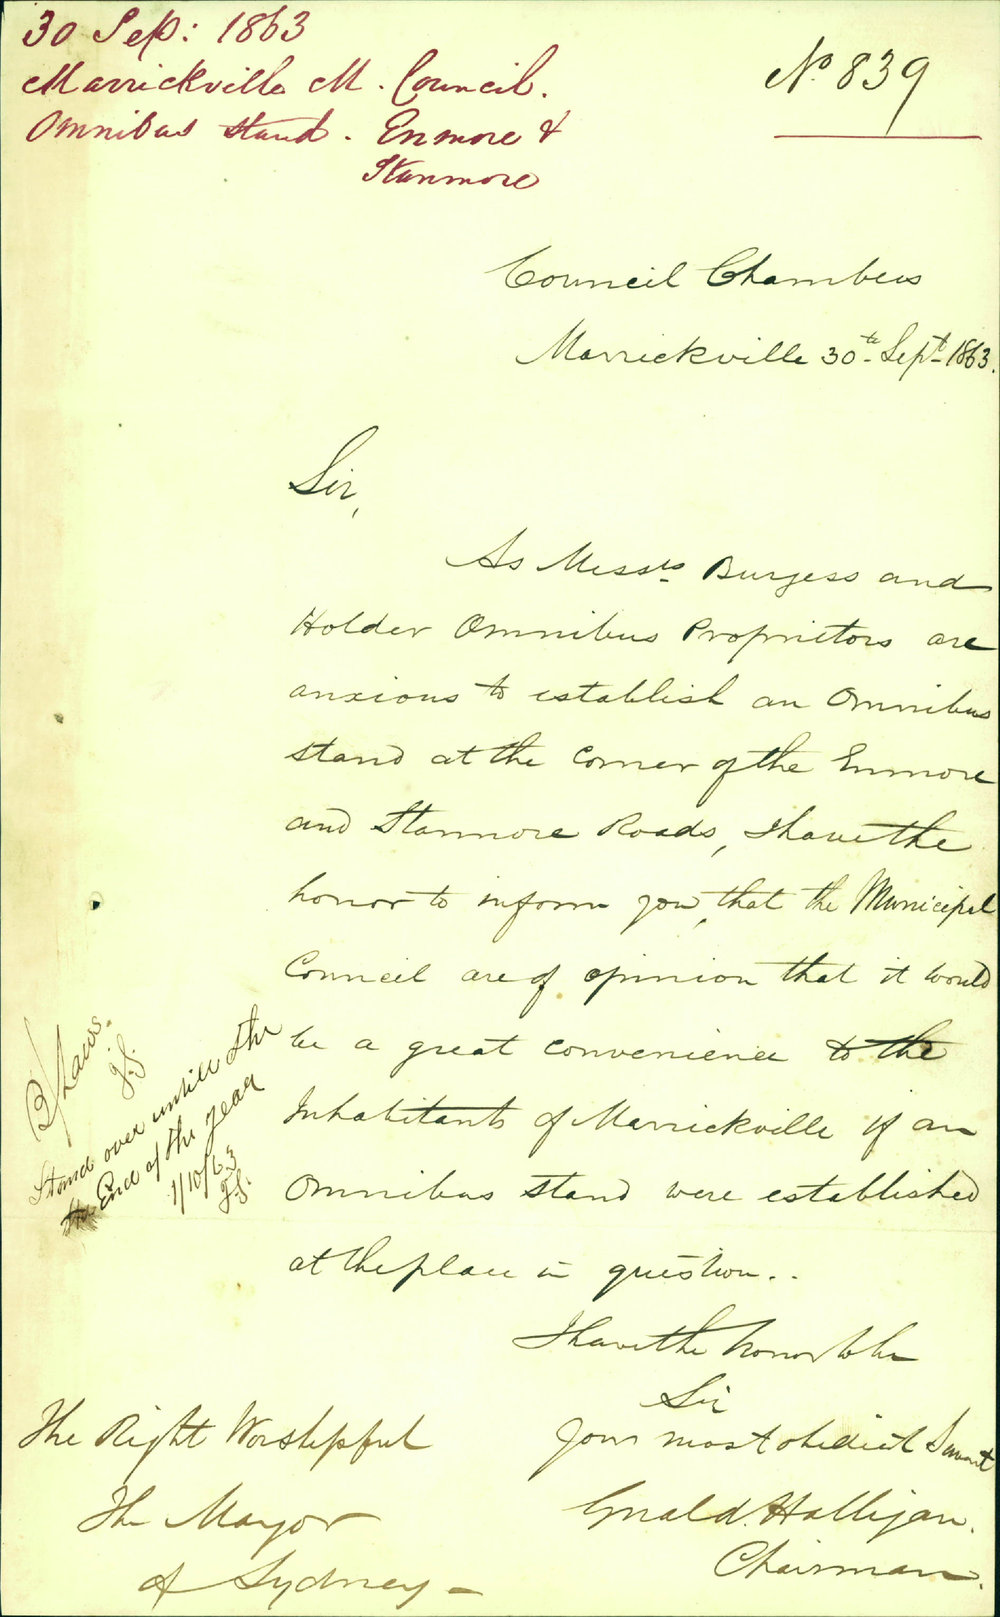 30 Sep: 1863
Marrickville M. Council.
Omnibus stand. Enmore &
Stanmore
No 839
Council Chambers
Marrickville 30th Sept 1863.
Sir,
As Messrs Burgess and
Holder Omnibus Proprietors are
anxious to establish an Omnibus
stand at the corner of the Enmore
and Stanmore Roads, I have the
honor to inform you, that the Municipal
Council are of opinion that it would
be a great convenience to the
Inhabitants of Marrickville if an
Omnibus stand were established
at the place in question..
I have the honor to be
Sir
Your most obedient Servant
Gerald Halligan.
Chairman.
The Right Worshipful
The Mayor
of Sydney -
B/Laws.
Stand over untill the
End of the year
1/10/63